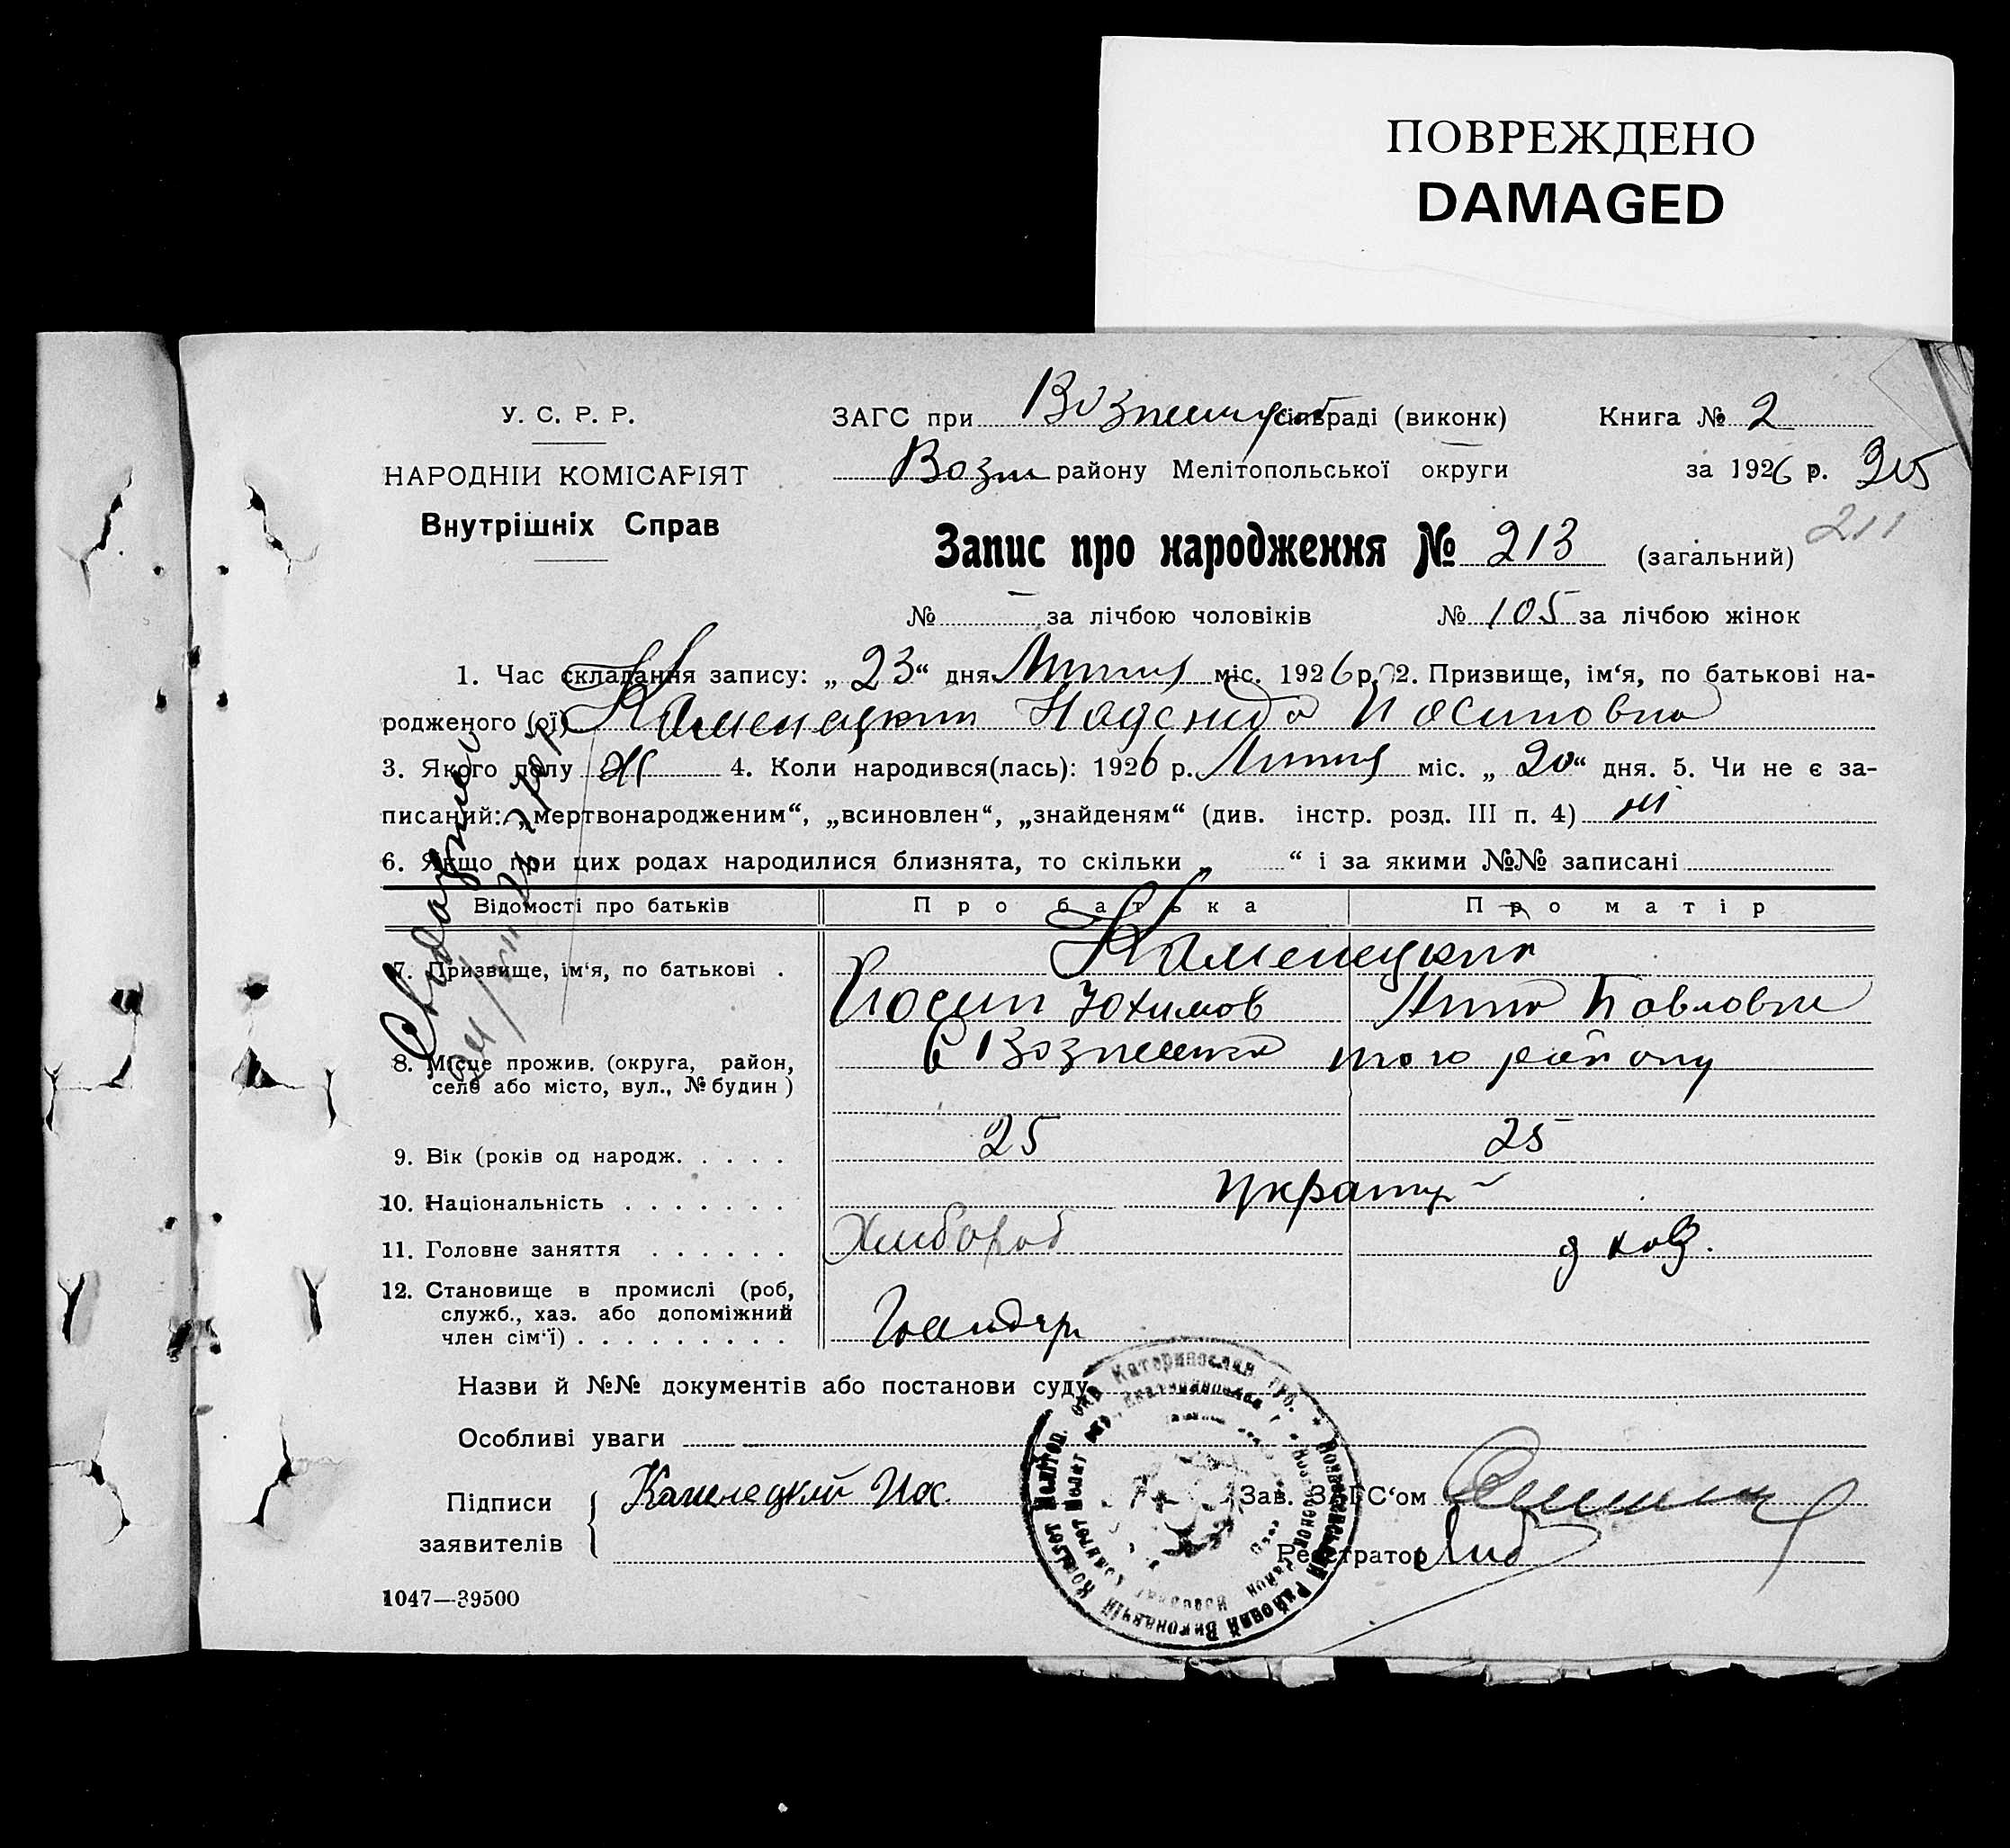 ПОВРЕЖДЕНО
DAMAGED
У. С. Р. Р.
НАРОДНІЙ КОМІСАРІЯТ
Внутрішніх Справ
ЗАГС при сільраді (виконк) Книга № 2
Возн району Мелітопольської округи за 1926 р. 215
211
Запис про народження № 213 (загальний)
№ — за лічбою чоловіків № 105 за лічбою жінок
1. Час складання запису: „ 23 “ дня Липня міс. 1926 р. 2. Призвище, ім‘я, по батькові на-
родженого (ої) Каменецкии Надежда Иосиповна
3. Якого полу Ж 4. Коли народився(лась): 1926 р. Липня міс. „ 20 “ дня. 5. Чи не є за-
писаний: „мертвонародженим“, „всиновлен“, „знайденям“ (див. інстр. розд. III п. 4) ні
6. Якщо при цих родах народилися близнята, то скільки „ “ і за якими №№ записані
Відомості про батьків Про батька Про матір
7. Призвище, ім‘я, по батькові . Каменецкии
Иосип Юхимов Анна Павловна
8. Місце прожив. (округа, район, с Вознесенка того району
село або місто, вул., № будин )
9. Вік (років од народж. . . . . 25 25
10. Національність . . . . . . . Украпнц
11. Головне заняття . . . . . . Хлибороб
12. Становище в промислі (роб,
служб., хаз. або допоміжний
член сім‘ї) . . . . . . . . .
Назви й №№ документів або постанови суду
Особливі уваги
Підписи Каменецкий Иос. Зав. ЗАГС‘ом
заявителів Реєстратор
1047—39500